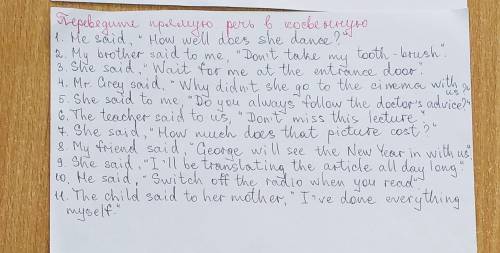 Переведите прямую речь в косвенную
1. He said, "How well does she dance?"
2. My brother said to me, "Don't take my tooth-brush".
3. She said, "Wait for me at the entrance door."
4. Mr. Grey said, "Why didn't she go to the cinema with us?"
5. She said to me, "Do you always follow the doctor's advice?"
6. The teacher said to us, "Don't miss this lecture."
7. She said, "How much does that picture cost?"
8. My friend said, "George will see the New Year in with us".
9. She said, "I'll be translating the article all day long"
10. He said, "Switch off the radio when you read"
11. The child said to her mother, "I've done everything
myself."